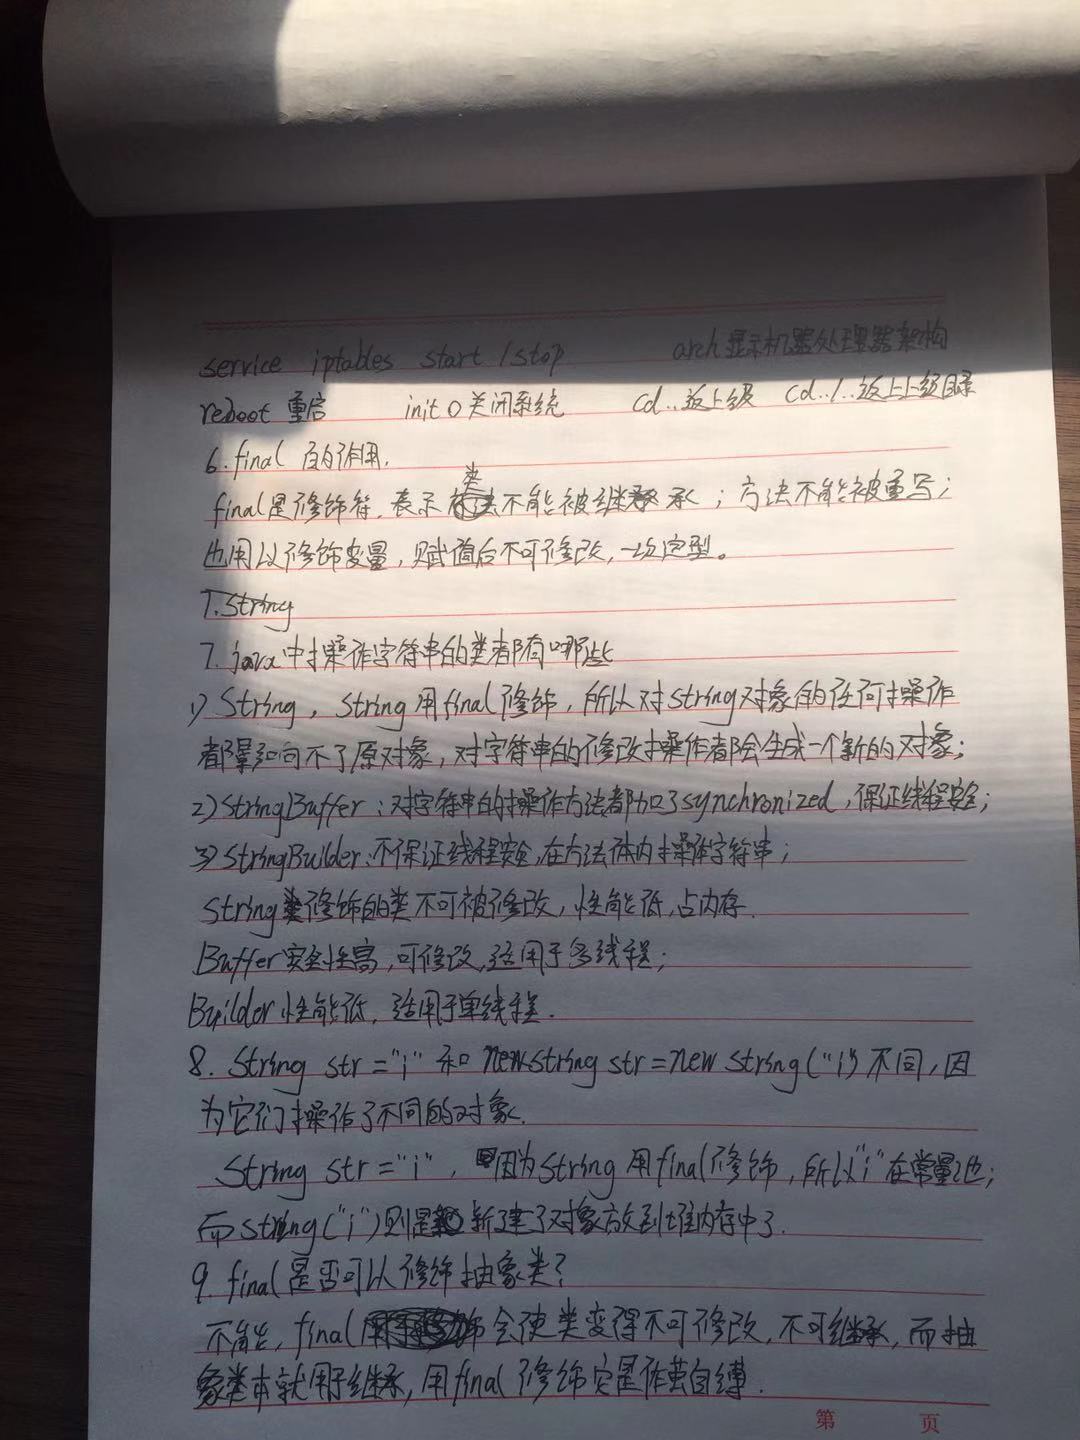 service iptables start / stop arch 显示机器处理器架构
reboot 重启 init 0 关闭系统 cd.. 返上级 cd../.. 返上上级目录
6. final 的作用.
final是修饰符, 表示类不能被继承; 方法不能被重写;
也用以修饰变量, 赋值后不可修改, 一次定型。
7. String
7. java中操作字符串的类都有哪些
1) String, String用final修饰, 所以对string对象的任何操作
都影响不了原对象, 对字符串的修改操作都会生成一个新的对象;
2) StringBuffer: 对字符串的操作方法都加了synchronized, 保证线程安全;
3) StringBuilder: 不保证线程安全, 在方法体内操作字符串;
String类修饰的类不可被修改, 性能低, 占内存.
Buffer安全性高, 可修改, 适用于多线程;
Builder性能低, 适用于单线程.
8. String str = "i" 和 new string str = new string("i") 不同, 因
为它们操作了不同的对象.
String str = "i", 因为String用final修饰, 所以"i"在常量池;
而string("i")则是新建了对象放到堆内存中了.
9. final是否可以修饰抽象类?
不能, final会使类变得不可修改, 不可继承, 而抽
象类本就用于继承, 用final修饰定是作茧自缚.
第 页